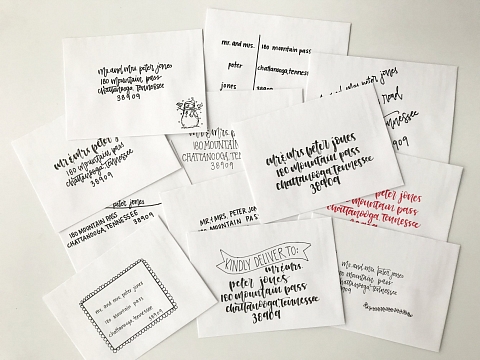 mr. and mrs. peter jones
180 mountain pass
chattanooga, tennessee
38909
mr. and mrs. 180 mountain pass
peter chattanooga, tennessee
jones 38909
peter jones
road
mr & mrs peter
180 mountain pass
chattanooga, tennessee
38909
mr and mrs
180 MOUNTAIN
CHATTANOOGA, TE
38909
mr & mrs peter jones
180 mountain pass
chattanooga, tennessee
38909
peter jones
180 MOUNTAIN PASS
CHATTANOOGA, TENNESSEE
38909
MR & MRS PETER JON
180 MOUNTAIN PAS
peter jones
mountain pass
chattanooga, tennessee
38909
KINDLY DELIVER TO:
mr & mrs.
peter jones
180 mountain pass
chattanooga, tennessee
38909
mr. and mrs. peter jones
180 mountain pass
chattanooga, tennessee
38909
mr. and mrs. peter jones
180 mountain pass
chattanooga, tennessee
38909